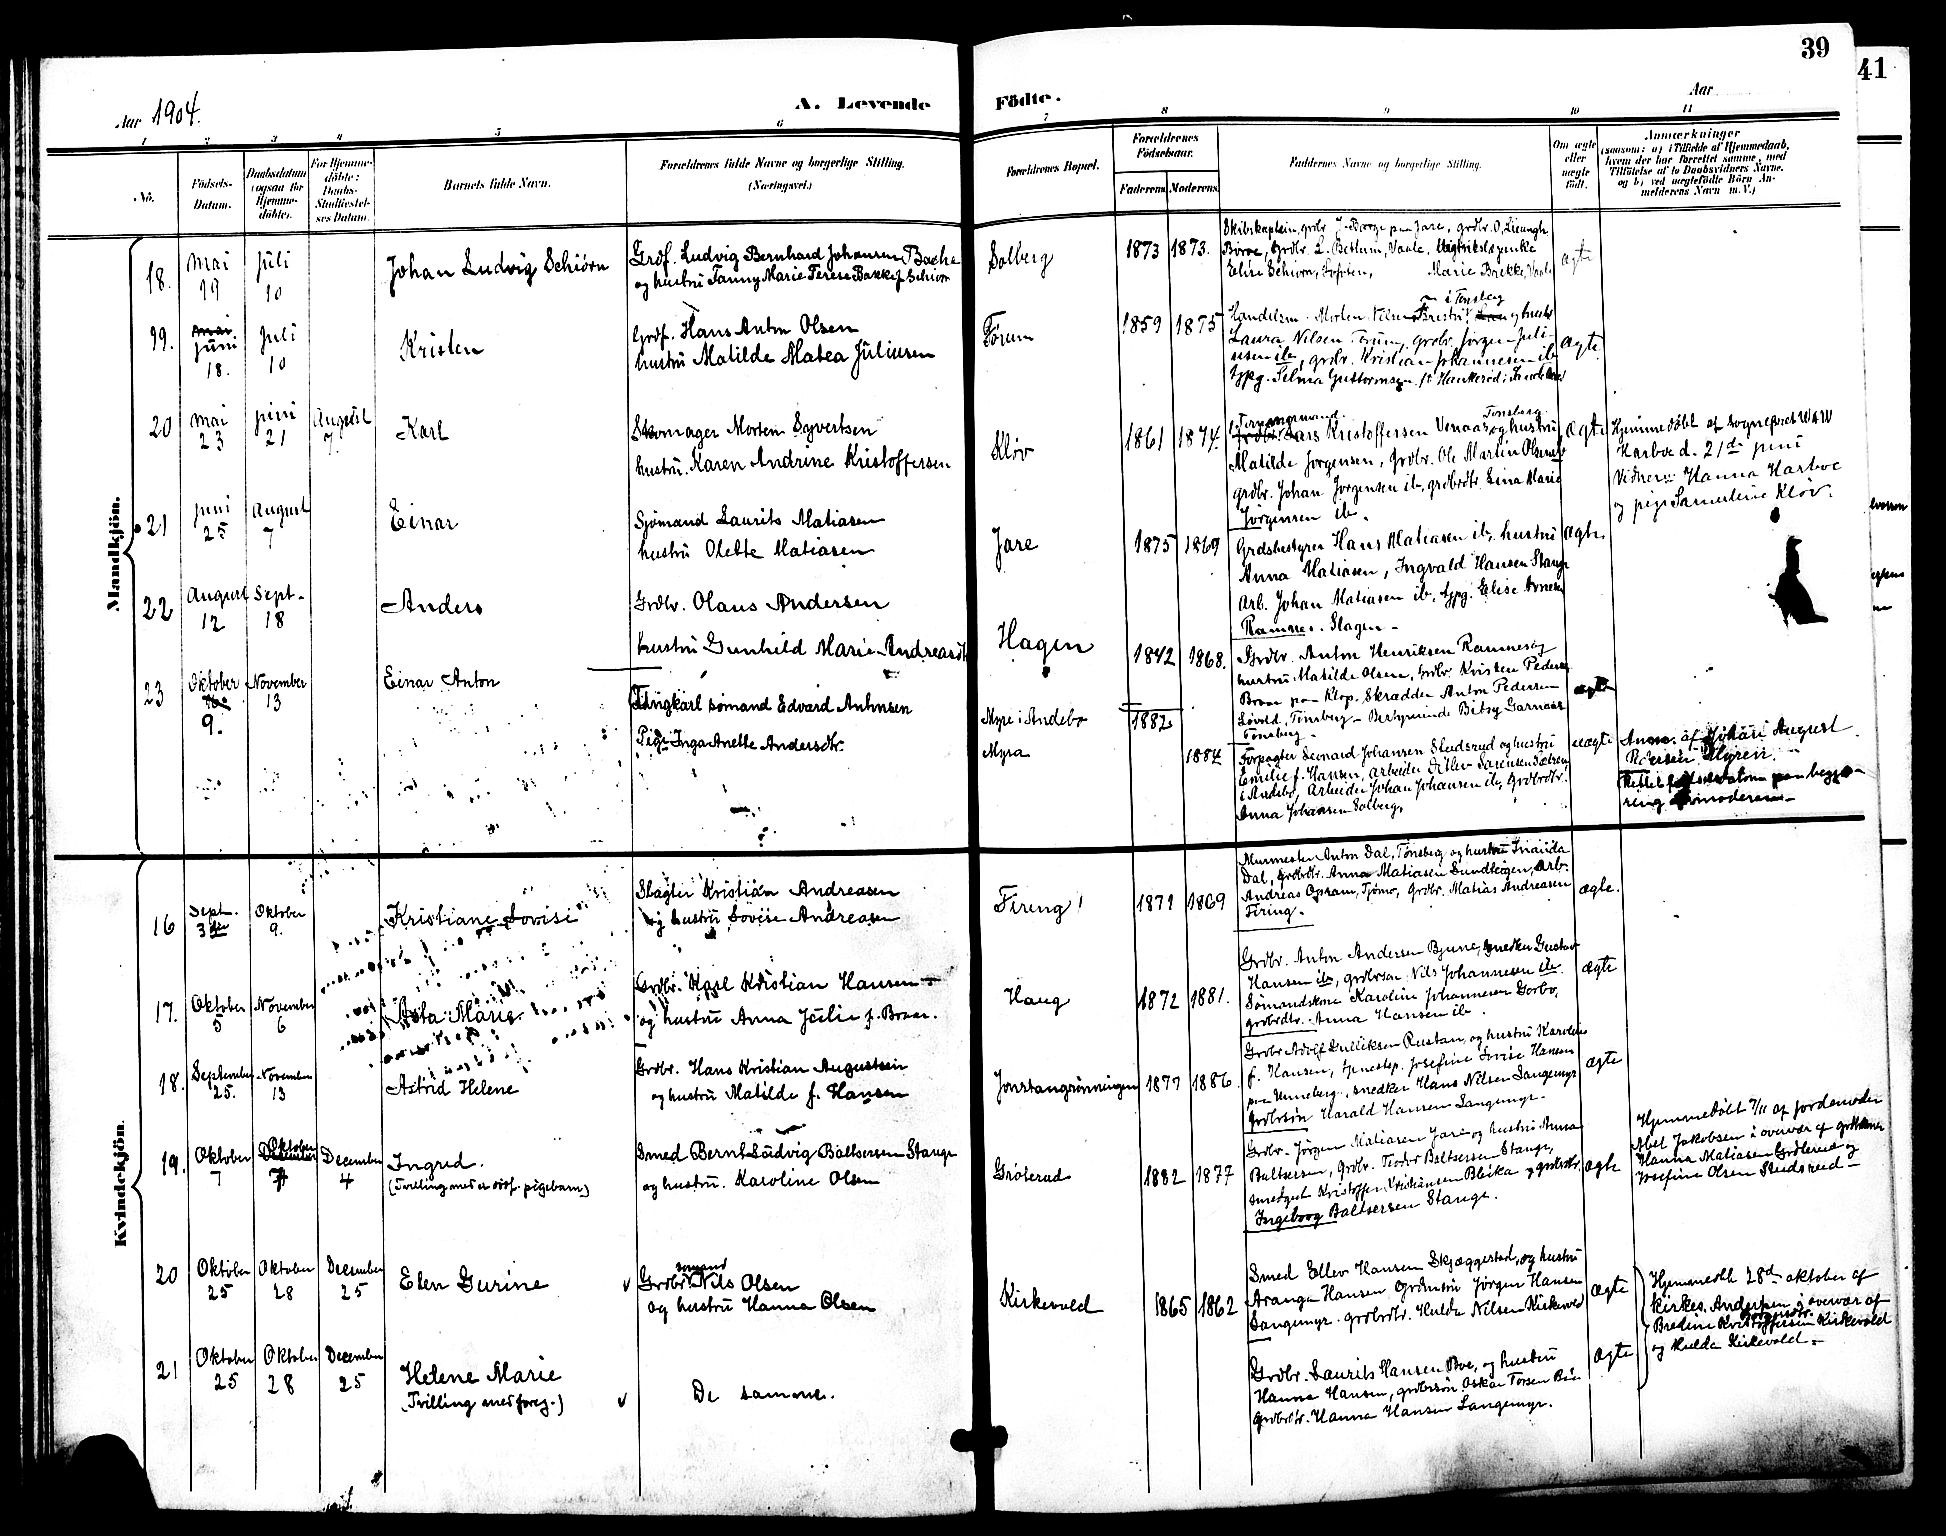 39
41
Aar 1904.
A. Levende Födte.
Aar
1 2 3 4 5 6 7 8 9 10 11
No.
Födsels-
Datum.
Daabsdatum
(ogsaa for
Hjemme-
döbte).
For Hjemme-
döbte:
Daabs-
Stadfæstel-
ses Datum.
Barnets fulde Navn.
Forældrenes fulde Navne og borgerlige Stilling.
(Næringsvei.)
Forældrenes Bopæl.
Forældrenes
Födselsaar.
Faderens Moderens
Faddernes Navne og borgerlige Stilling.
Om ægte
eller
uægte
födt.
Anmærkninger
(saasom: a) i Tilfælde af Hjemmedaab,
hvem der har forrettet samme, med
Tilföielse af to Daabsvidners Navne.
og b) ved uægtefödte Börn An-
melderens Navn m. V.)
Mandkjön.
18.
Mai
19
Juli
10
Johan Ludvig Schiörn
Grdf. Ludvig Bernhard Johansen Bache
og hustru Fanny Marie Terese Bakke f. Schiörn
Solberg
1873 1873.
Elise Schiorn,
Marie Brekke,
ægte
19.
Mai
Juni
18.
Juli
10
Kristen
Grdf. Hans Anton Olsen
hustru Matilde Matea Juliusen
Forum
1859 1875
i Tonsberg
Laura Nilsen Forum, grdbr. Jörgen Juli-
ussen ib, grdbr. Kristian Johannesen ib
ægte
20
Mai
23
Juni
21
August
7.
Karl
Skomager Morten Syvertsen
hustru. Karen Andrine Kristoffersen
Klöv
1861 1874.
Tonsberg
Lars Kristoffersen Venaas og hustru
Matilde Jorgensen, Grdbr. Ole Martin Olsen ib
grdbr. Johan Jorgensen ib, grdbrdtr. Lina Marie
Jörgensen ib.
ægte
Hjemmedöbt af sogneprest
Harboe d. 21de juni
Vidner: Hanna Harboe
og pige Klöv.
21
Juni
25
August
7
Einar
Sjömand Laurits Matiasen
hustru Olette Matiasen
Jare
1875 1869
Grdsbestyrer Hans Matiasen ib, hustru
Anna Matiasen, Ingvald Hansen Stange
Arb. Johan Matiasen ib, tjpg. Elise
Ramnes. Slagen -
ægte
22
August
12
Sept.
18
Anders
Grdbr. Olaus Andersen
hustru Gunhild Marie Andreasdtr
Hagen
1842 1868.
Grdbr. Anton Henriksen Ramnes og
hustru Matilde Olsen, Grdbr. Kristen Pedersen
Skrædder Anton Pedersen
Tönsberg
Tönsberg -
ægte
23
Oktober
9.
November
13
Einar Anton
Ungkarl sömand Edvard Antonsen
Pige Inga Anette Andersdtr.
Myre i Andebo
Myra
1882
1884
Forpagter Leonard Johansen Sledsrud og hustru
Emilie f. Hansen, arbeider Ditlev Sörensen
i Andebo, Arbeider Johan Johansen ib, Grdbrdtr.
Anna Johansen Solberg,
uægte
Anm. af Johan August
Pedersen Myren.
Kvindekjön.
16
Sept.
3die
Oktober
9.
Kristiane Lovise
Slagter Kristian Andreasen
og hustru Lovise Andreasen
Firing
1871 1869
Murmester Anton Dal, Tönsberg og hustru
Dal, Grdbrdtr. Anna Matiasen Sundteigen, Arb.
Andreas Tjömö, Grdbr. Matias Andreasen
Firing -
ægte.
17.
Oktober
5
November
6
Asta Marie
Grdbr. Karl Kristian Hansen
og hustru Anna Julie f. Braar.
Haug
1872 1881.
Grdbr. Anton Andersen Bjune, snedker Gustav
Hansen ib, grdbrsön Nils Johannesen ib.
Sömandskone Karoline Johannesen Gorbo,
grdbrdtr. Anna Hansen ib.
ægte
18.
September
25.
November
13
Astrid Helene
Grdbr. Hans Kristian Augustsen
og hustru Matilde f. Hansen
Jonstangrönningen
1877 1886.
Grdbr. Adolf Gulliksen Rustan, og hustru Karoline
f. Hansen, tjenestep. Josefine Lovise Hansen
paa Unneberg, snedker Hans Nilsen Langemyr
grdbrsön Harald Hansen Langemyr.
ægte
19.
Oktober
7
Oktober
7
December
4
Ingrid.
(Tvilling med et pigebarn)
Smed Bernt Ludvig Baltsersen Stange
og hustru. Karoline Olsen
Gröterud
1882 1877
Grdbr. Jörgen Matiasen Jare og hustru Anna
Baltsersen, grdbr. Teodor Baltsersen Stange,
Kristoffer Kristiansen Bleika og grdbrdtr.
Ingeborg Baltsersen Stange.
ægte
Hjemmedöbt af jordmoder
Abel Jakobsen i overvær af
Hanna Matiasen Gröterud og
Josefine Olsen Sledsrud -
20
Oktober
25
Oktober
28
December
25
Elen Gurine
sömand
Grdbr Nils Olsen
og hustru Hanna Olsen
Kirkevold
1865 1862
Smed Ellev Hansen Skjæggestad, og hustru
Aranga Hansen Grdmön Jörgen Hansen
Langemyr. grdbrdtr. Hulda Nilsen Kirkevold
ægte
Hjemmedöbt 28d oktober af
kirkes. Andersen i overvær af
Bredine Kristoffersen Kirkevold
og Hulda Kirkevold -
21
Oktober
25
Oktober
28
December
25
Helene Marie
(Tvilling med foreg.)
De samme.
Grdbr. Laurits Hansen Boe, og hustru
Hanna Hansen, grdbrsön Oskar Torsen
Grdbrdtr. Hanna Hansen Langemyr.
ægte